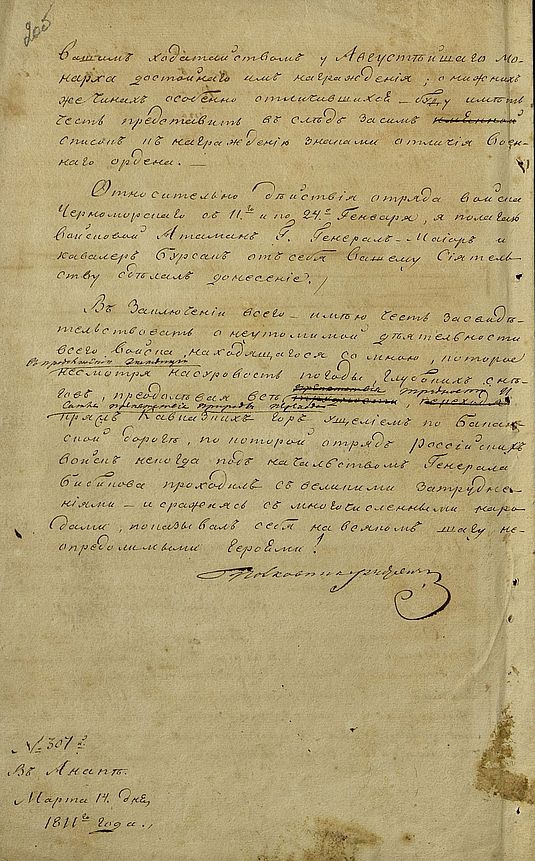 205
вашимъ ходатайствомъ у Августѣйшаго Мо-
нарха достойнаго имъ награжденія; о нижнихъ
же чинахъ особенно отличившихся – буду имѣть
честь представить въ слѣдъ засимъ именной
списокъ къ награжденію знаками отличія воен-
наго ордена. —
Относительно дѣйствія отряда войска
Черноморскаго съ 11.го и по 24.е Генваря, я полагаю
войсковой Атаманъ Г. Генералъ-Маіоръ и
кавалеръ Бурсакъ отъ себя Вашему Сіятель-
ству сдѣлалъ донесеніе.
Въ Заключеніи всего – имѣю честь засвидѣ-
тельствовать о неутомимой дѣятельности
всего войска, находящагося со мною, которое
несмотря на суровость погоды, глубокихъ снѣ-
говъ, преодолѣвая всѣ
Кавказскихъ горъ ущеліемъ по Бакан-
ской дорогѣ, по которой отрядъ Россійскихъ
войскъ некогда подъ начальствомъ Генерала
Бибикова проходилъ съ великими затрудне-
ніями – и сражаясь съ многочисленными наро-
дами, показывалъ себя на всякомъ шагу не-
опредолимыми героями!
№ 307.й
Въ Анапѣ.
Марта 14. дня,
1811го Года.